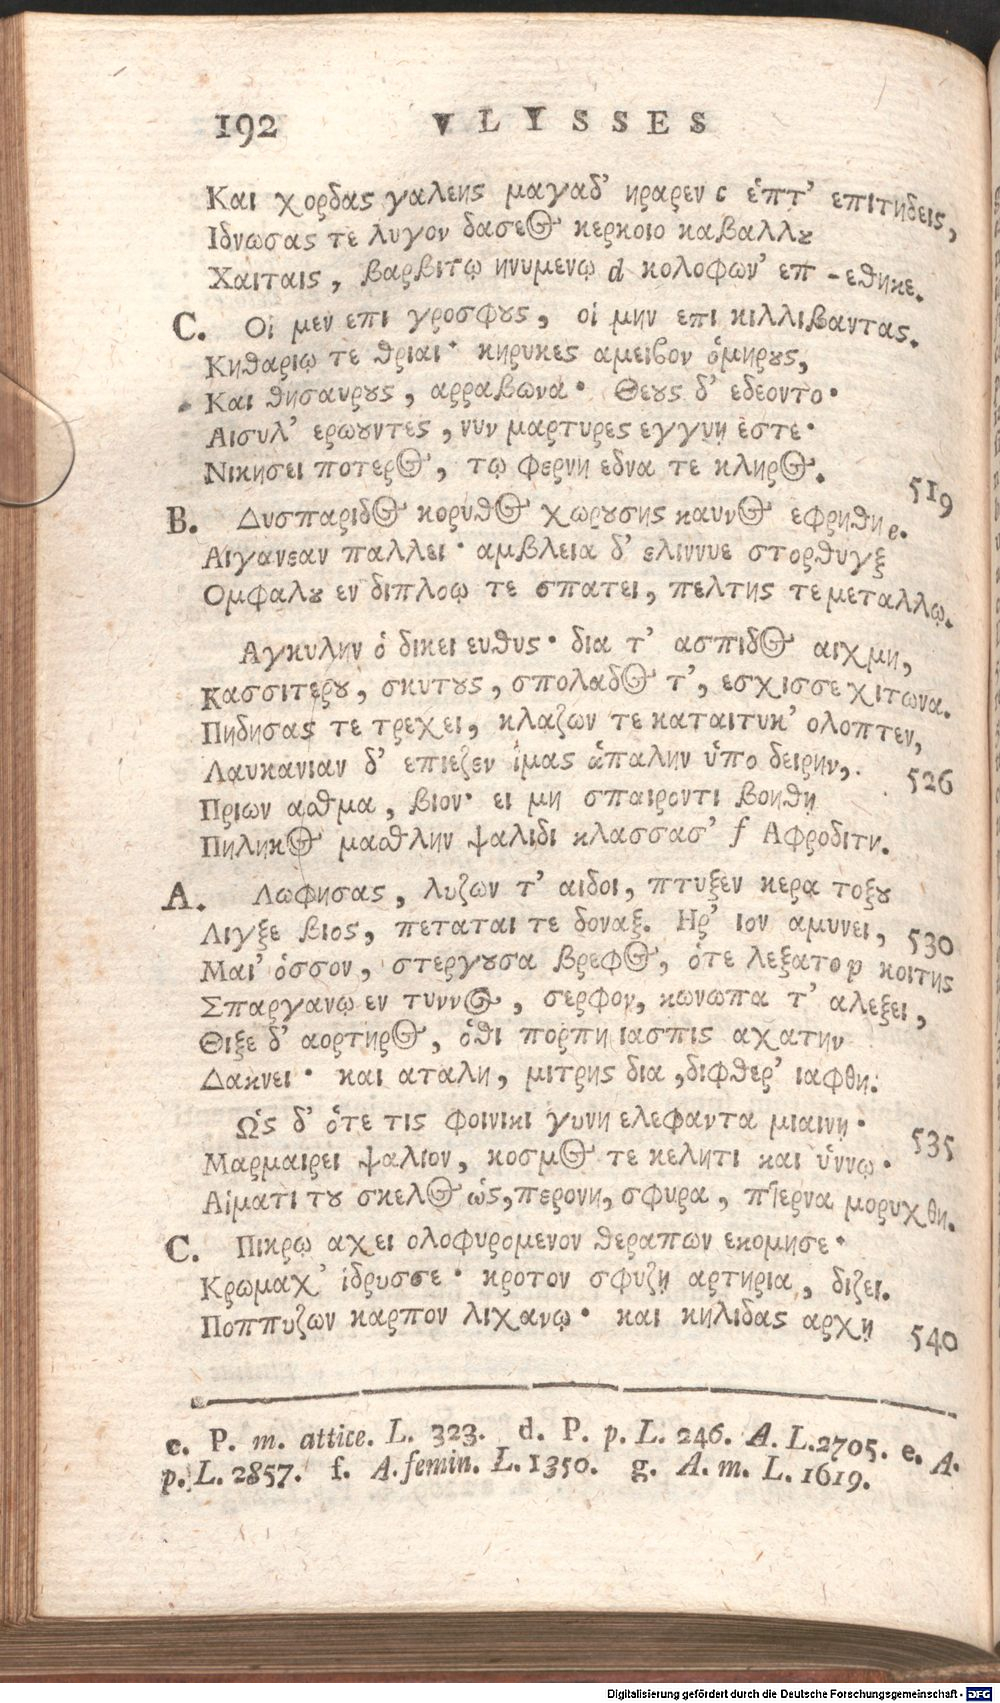 192 ULYSSES
Και χορδας γαλεης μαγαδ' ηραρεν c ἑπτ' επιτηδεις,
Ιδνωσας τε λυγον δασεος κερκοιο καβαλλου
Χαιταις, βαρβιτῳ ηνυμενῳ d κολοφων' επ-εθηκε.
C. Οἱ μεν επι γροσφους, οἱ μην επι κιλλιβαντας.
Κηθαριῳ τε θριαι· κηρυκες αμειβον ὁμηρους,
Και θησαυρους, αρραβωνα· Θεους δ' εδεοντο·
Αισυλ' ερωουντες, νυν μαρτυρες εγγυη ἐστε·
Νικησει ποτερος, τῳ φερνη εδνα τε κληρος. 519
B. Δυσπαριδος κορυθος χωρουσης καυνος εφρηθη e.
Αιγανεαν παλλει· αμβλεια δ' ελιννυε στορθυγξ
Ομφαλου εν διπλοῳ τε σπατει, πελτης τε μεταλλῳ.
Αγκυλην ὁ δικει ευθυς· δια τ' ασπιδος αιχμη,
Κασσιτερου, σκυτους, σπολαδος τ', εσχισσε χιτωνα.
Πηδησας τε τρεχει, κλαζων τε καταιτυκ' ολοπτεν,
Λαυκανιαν δ' επιεζεν ἱμας ἁπαλην ὑπο δειρην, 526
Πριων αοθμα, βιον· ει μη σπαιροντι βοηθῃ
Πηληκος μαοθλην ψαλιδι κλασσασ' f Αφροδιτη.
A. Λωφησας, λυζων τ' αιδοι, πτυξεν κερα τοξου
Λιγξε βιος, πεταται τε δοναξ. Ηρ' ιον αμυνει, 530
Μαι' ὁσσον, στεργουσα βρεφος, ὁτε λεξατο p κοιτης
Σπαργανῳ εν τυννος, σερφον, κωνωπα τ' αλεξει,
Θιξε δ' αορτηρος, ὁθι πορπη ιασπις αχατην
Δακνει· και αταλη, μιτρης δια, διφθερ' ιαφθη.
Ὡς δ' ὁτε τις φοινικι γυνη ελεφαντα μιαινῃ· 535
Μαρμαιρει ψαλιον, κοσμος τε κελητι και ὑννῳ·
Αἱματι του σκελος ὡς, περονη, σφυρα, πτερνα μορυχθη.
C. Πικρῳ αχει ολοφυρομενον θεραπων εκομησε·
Κρωμαχ' ἱδρυσσε· κροτον σφυζῃ αρτηρια, διζει.
Ποππυζων καρπον λιχανῳ· και κηλιδας αρχῃ 540
c. P. m. attice. L. 323. d. P. p. L. 246. A. L. 2705. e. A.
p. L. 2857. f. A. femin. L. 1350. g. A. m. L. 1619.
Digitalisierung gefördert durch die Deutsche Forschungsgemeinschaft - DFG